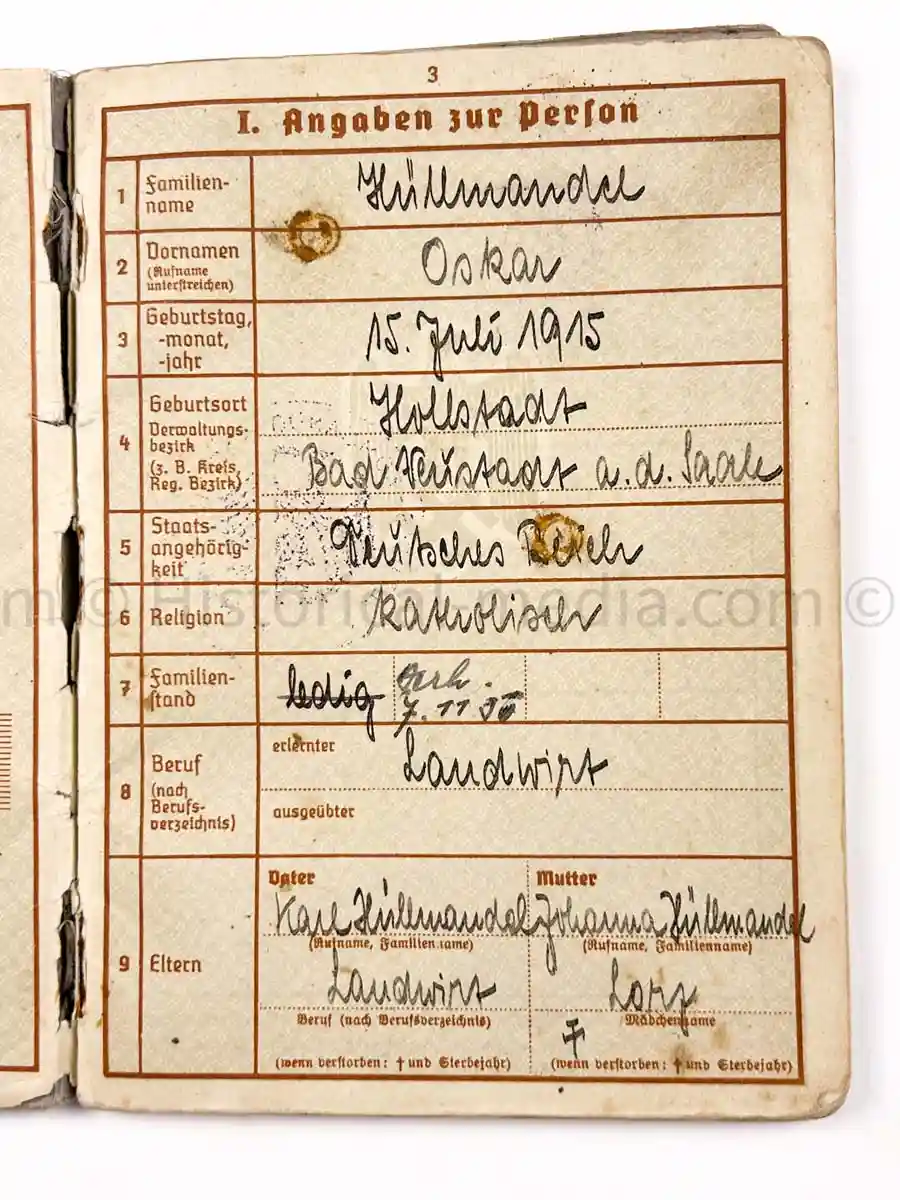 3
I. Angaben zur Person
1 Familien-
name
Hüllmandel
2 Vornamen
(Rufname
unterstreichen)
Oskar
3 Geburtstag,
-monat,
-jahr
15. Juli 1915
4 Geburtsort
Verwaltungs-
bezirk
(z. B. Kreis,
Reg. Bezirk)
Hollstadt
Bad Neustadt a. d. Saale
5 Staats-
angehörig-
keit
Deutsches Reich
m © Historical-media.com ©
6 Religion
katholisch
7 Familien-
stand
ledig
verh.
7. 11
8 Beruf
(nach
Berufs-
verzeichnis)
erlernter
Landwirt
ausgeübter
9 Eltern
Vater
Karl Hüllmandel
(Rufname, Familienname)
Landwirt
Beruf (nach Berufsverzeichnis)
(wenn verstorben: † und Sterbejahr)
Mutter
Johanna Hüllmandel
(Rufname, Familienname)
Lorz
Mädchenname
†
(wenn verstorben: † und Sterbejahr)